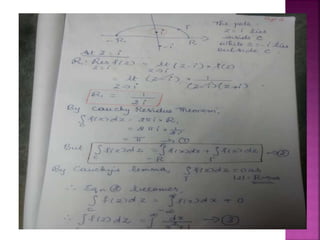 The pole
z = i lies
inside C
while z = -i lies
outside C.
-R R
-i
At z = i
R₁ = Res f(z) = Lt (z-i) × f(z)
z=i z→i
= Lt (z-i) × 1/(z-i)(z+i)
z→i
R₁ = 1/2i
By Cauchy Residue Theorem,
∫ f(z) dz = 2πi × R₁
C
= 2πi × 1/2i
= π → ①
But ∫ f(z) dz = ∫ f(x) dx + ∫ f(z) dz → ②
C -R Γ
By Cauchy's lemma, ∫ f(z) dz = 0 as
|z| = R → ∞
∴ Eqn ② becomes,
∫ f(z) dz = ∫ f(x) dx + 0
C -∞
∴ ∫ f(z) dz = ∫ dx → ③